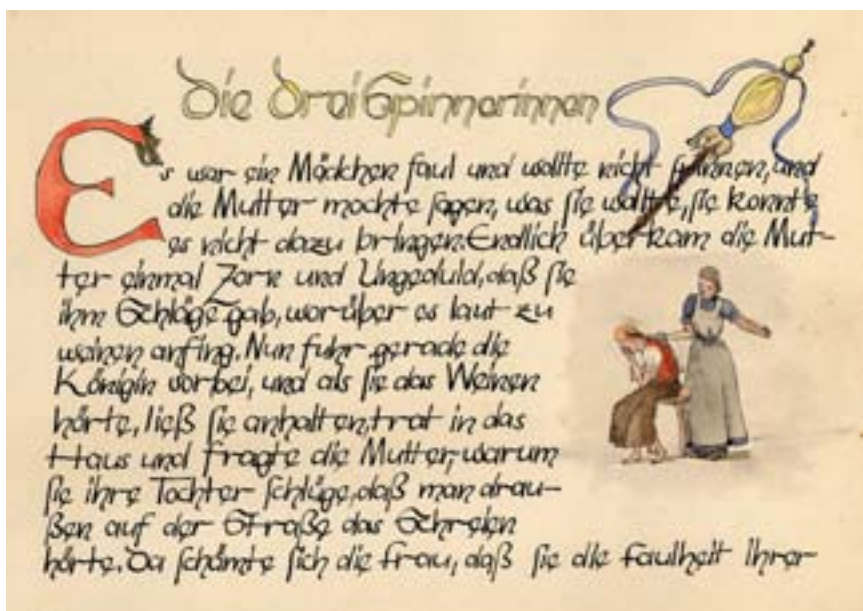 Die drei Spinnerinnen
Es war ein Mädchen faul und wollte nicht spinnen, und
die Mutter mochte sagen, was sie wollte, sie konnte
es nicht dazu bringen. Endlich überkam die Mut-
ter einmal Zorn und Ungeduld, daß sie
ihm Schläge gab, worüber es laut zu
weinen anfing. Nun fuhr gerade die
Königin vorbei, und als sie das Weinen
hörte, ließ sie anhalten, trat in das
Haus und fragte die Mutter, warum
sie ihre Tochter schlüge, daß man drau-
ßen auf der Straße das Schreien
hörte. Da schämte sich die Frau, daß sie die Faulheit ihrer